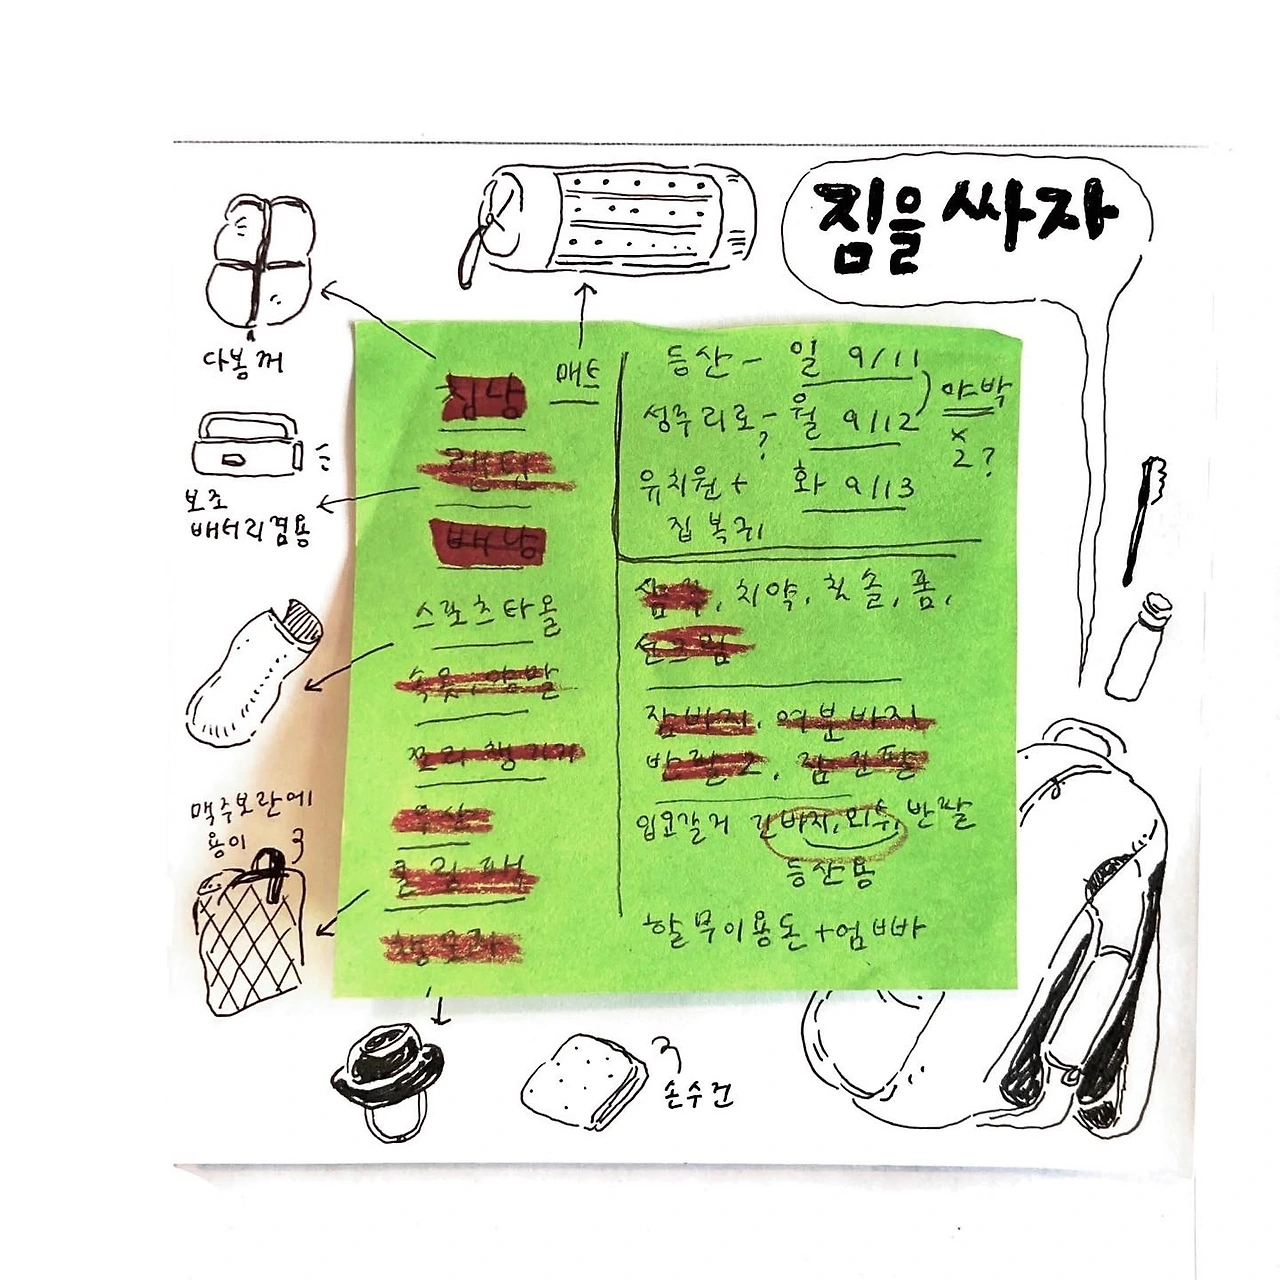 짐을 싸자
다봉꺼
보조
배터리겸용
맥주보관에
용이
손수건
매트
침낭
랜턴
배낭
스포츠타올
속옷, 양말
꼬리 행거기
우산
쿨링 팩
등산 - 일 9/11
성주리로 - 월 9/12
?
야박
x
2?
유치원 + 화 9/13
집 복귀
치약, 칫솔, 폼,
선크림
잠바지, 여분바지
반팔2, 잠 긴팔
입고갈거 긴바지, 외수, 반팔
등산용
할무이용돈 + 엄빠빠